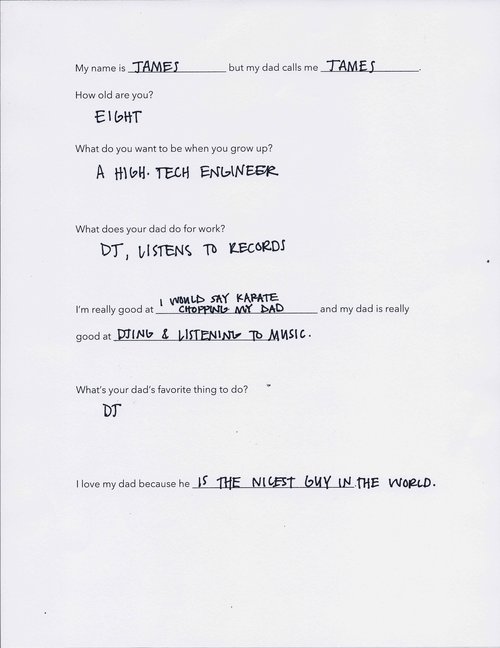 My name is JAMES but my dad calls me JAMES.
How old are you?
EIGHT
What do you want to be when you grow up?
A HIGH-TECH ENGINEER
What does your dad do for work?
DJ, LISTENS TO RECORDS
I WOULD SAY KARATE
I'm really good at CHOPPING MY DAD and my dad is really
good at DJING & LISTENING TO MUSIC.
What's your dad's favorite thing to do?
DJ
I love my dad because he IS THE NICEST GUY IN THE WORLD.